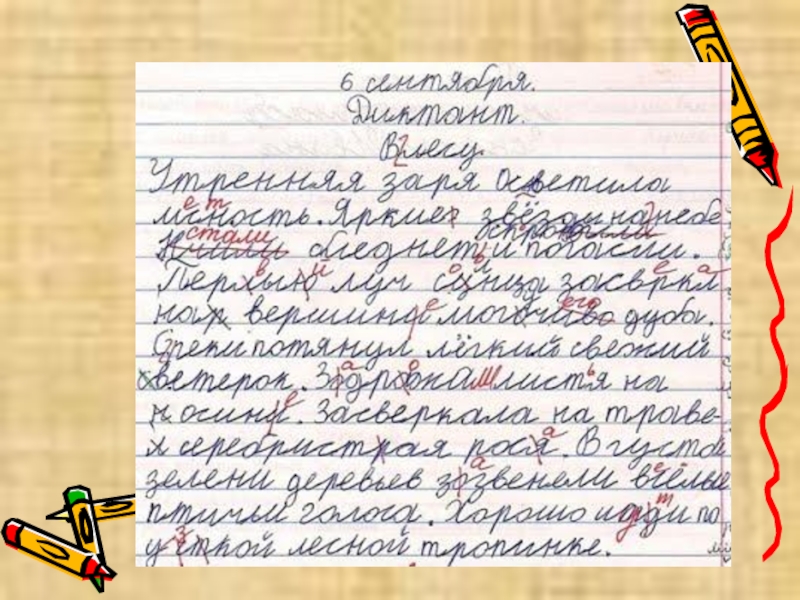 6 сентября.
Диктант.
В лесу.
Утренняя заря осветила
месность. Яркие звёзды на небе
стали бледнеть и погасли.
Первый луч сонца засверкал
на вершине могочего дуба.
С реки потянул лёгкий свежий
ветерок. Задрожали листья на
осине. Засверкала на траве
серебристая роса. В густой
зелени деревьев зазвенели весёлые
птичьи голоса. Хорошо идти по
узкой лесной тропинке.